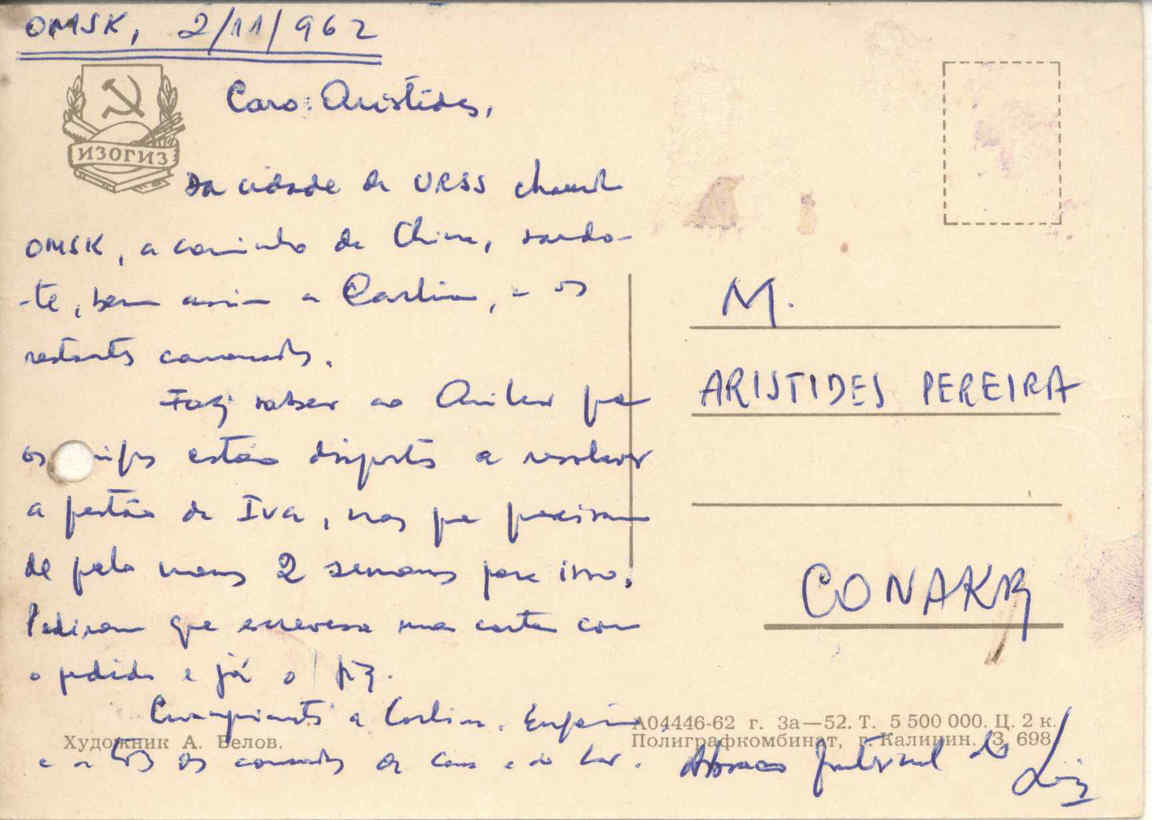 OMSK, 2/11/962
ИЗОГИЗ
Caro Aristides,
Da cidade da URSS chamada
OMSK, a caminho da China, saúdo-
-te, bem assim a Carlina, e os
restantes camaradas.
Faz saber ao Amílcar que
os estão dispostos a resolver
a questão da Iva, mas que precisam
de pelo menos 2 semanas para isso.
Pediram que escrevesse uma carta com
o pedido e já o fiz.
Cumprimentos a Carlina,
e a todos os camaradas da casa e do Lar. Abraço fraternal do
Luiz
M.
ARISTIDES PEREIRA
CONAKRY
Художник А. Белов.
А04446-62 г. За—52. Т. 5 500 000. Ц. 2 к.
Полиграфкомбинат, г. Калинин. З. 698